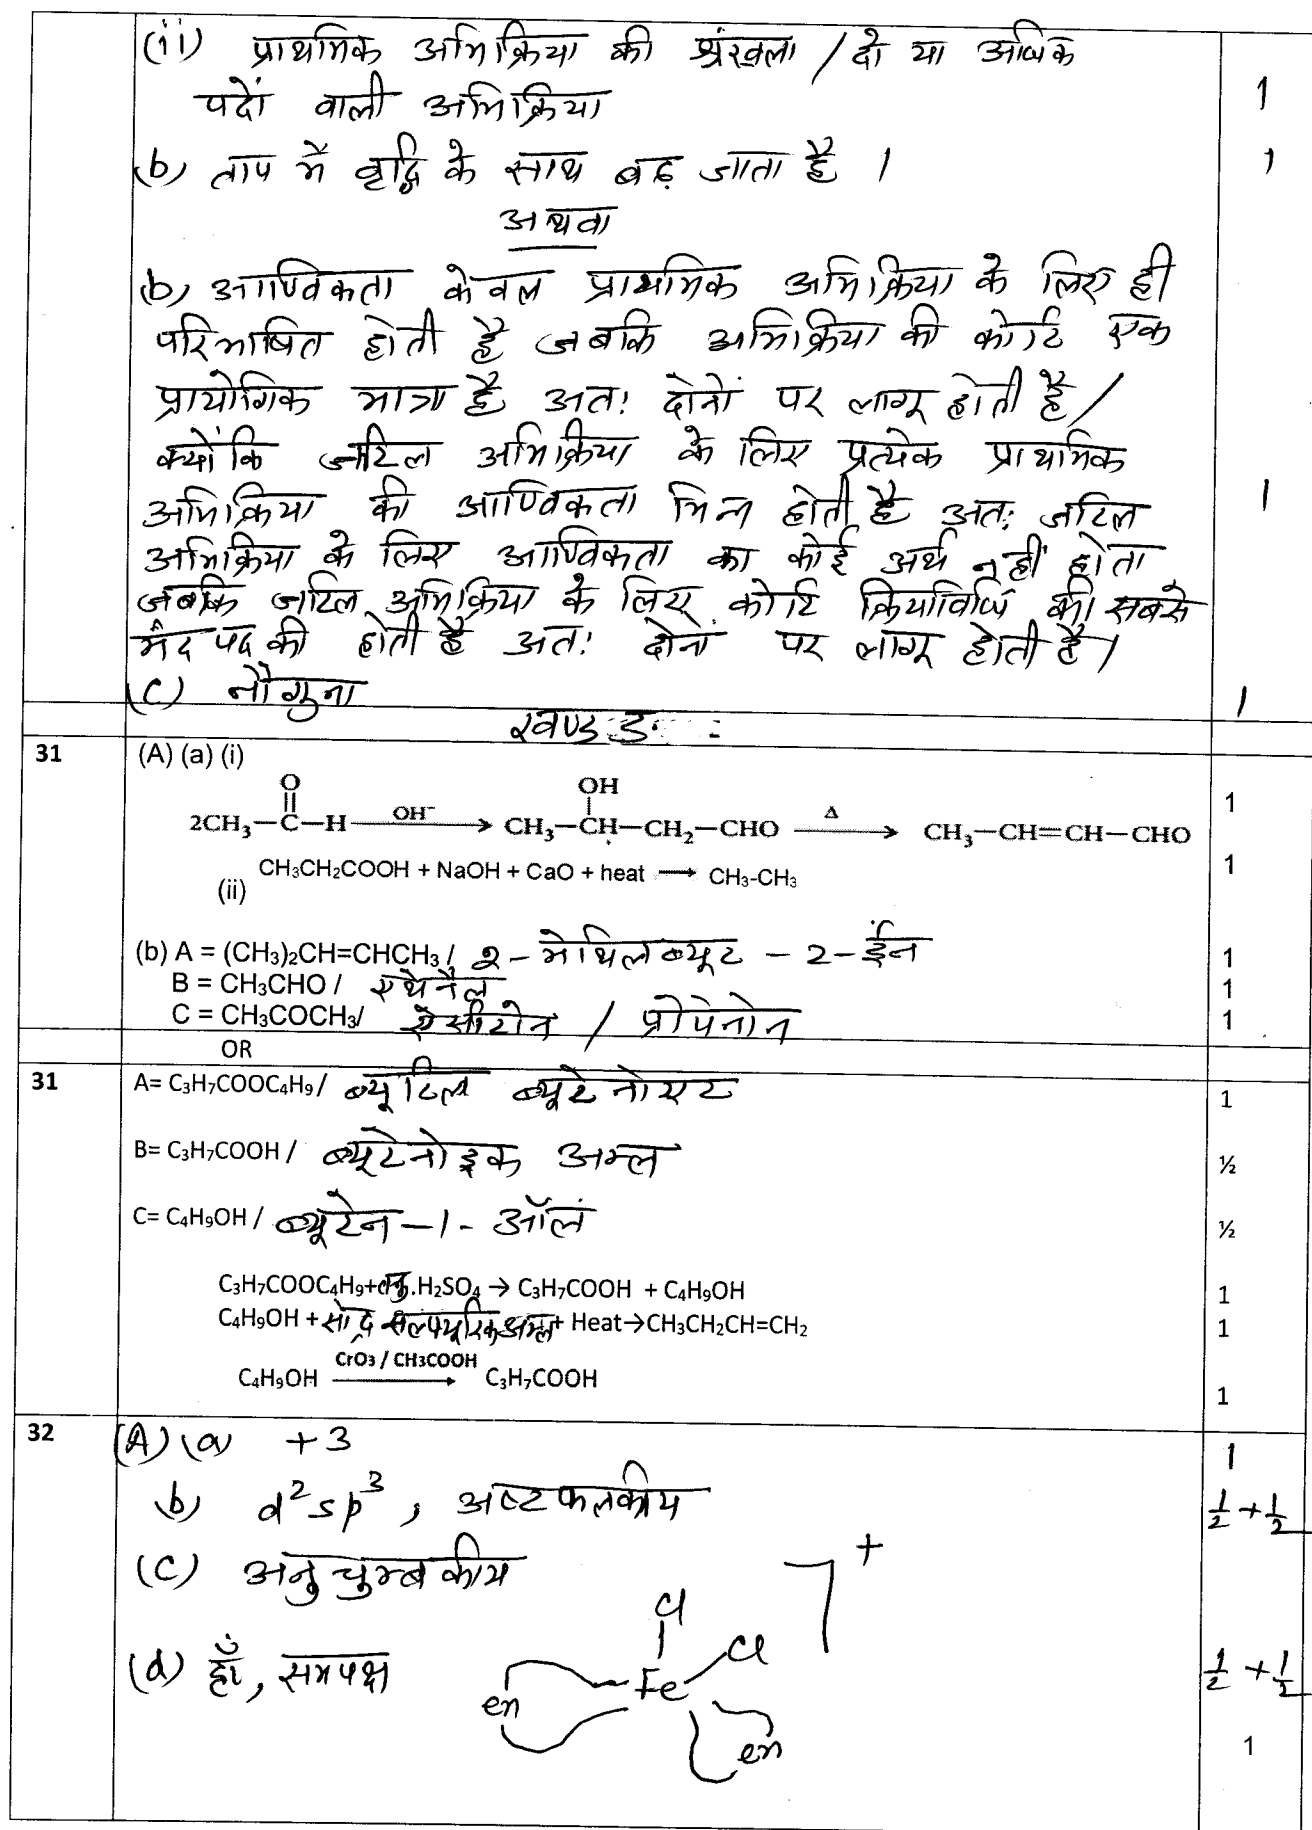 (ii) प्राथमिक अभिक्रिया की श्रृंखला / दो या अधिक
पदों वाली अभिक्रिया 1
(b) ताप में वृद्धि के साथ बढ़ जाता है । 1
अथवा
(b) आण्विकता केवल प्राथमिक अभिक्रिया के लिए ही
परिभाषित होती है जबकि अभिक्रिया की कोटि एक
प्रायोगिक मात्रा है अतः दोनों पर लागू होती है /
क्योंकि जटिल अभिक्रिया के लिए प्रत्येक प्राथमिक
अभिक्रिया की आण्विकता भिन्न होती है अतः जटिल 1
अभिक्रिया के लिए आण्विकता का कोई अर्थ नहीं होता
जबकि जटिल अभिक्रिया के लिए कोटि क्रियाविधि की सबसे
मंद पद की होती है अतः दोनों पर लागू होती है /
(c) नौ गुना 1
खण्ड ङ
31 (A) (a) (i)
2CH₃–C(=O)–H —OH⁻→ CH₃–CH(OH)–CH₂–CHO —Δ→ CH₃–CH=CH–CHO 1
(ii) CH₃CH₂COOH + NaOH + CaO + heat → CH₃-CH₃ 1
(b) A = (CH₃)₂CH=CHCH₃ / 2-मेथिलब्यूट-2-ईन 1
B = CH₃CHO / एथेनैल 1
C = CH₃COCH₃/ ऐसीटोन / प्रोपेनोन 1
OR
31 A= C₃H₇COOC₄H₉/ ब्यूटिल ब्यूटेनोएट 1
B= C₃H₇COOH / ब्यूटेनोइक अम्ल ½
C= C₄H₉OH / ब्यूटेन-1-ऑल ½
C₃H₇COOC₄H₉+तनु.H₂SO₄ → C₃H₇COOH + C₄H₉OH 1
C₄H₉OH + सांद्र सल्फ्यूरिक अम्ल + Heat→CH₃CH₂CH=CH₂ 1
C₄H₉OH —CrO₃ / CH₃COOH→ C₃H₇COOH 1
32 (A) (a) +3 1
b) d²sp³, अष्टफलकीय ½ + ½
(c) अनुचुम्बकीय
(d) हाँ, समपक्ष ½ + ½
Cl
Cl
Fe
en
en
+
1